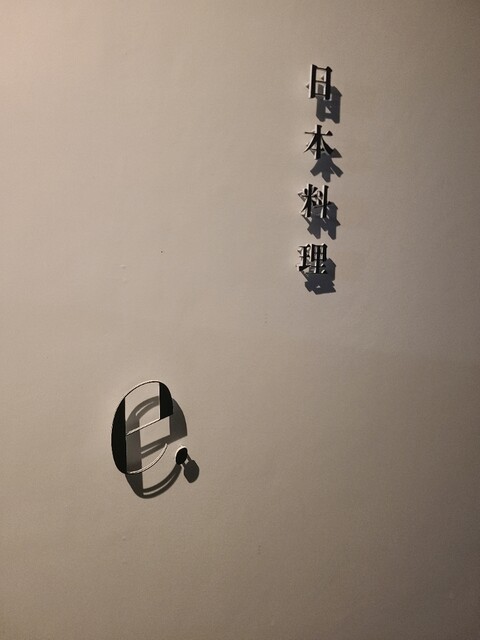 日本料理
e.